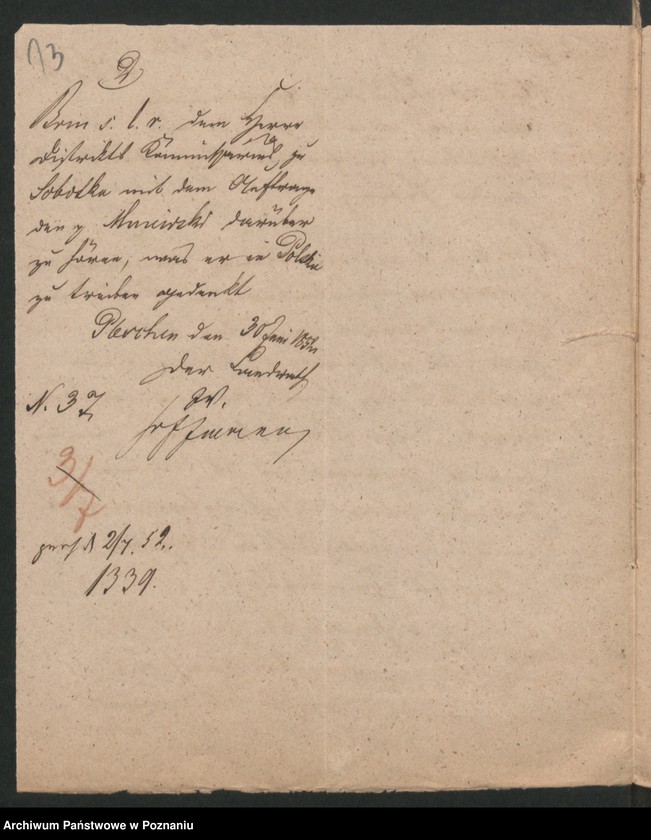 13
2)
Brm s. l. r. dem Herrn
Distrikts Kommissarius zu
Sobotka mit dem Auftrage
den p. darüber
zu hören, was er in Polen
zu treiben gedenkt
Pleschen den 30 Juni 1852
Der Landrath
N. 37
3/7
2/7. 52.
1339.
Archiwum Państwowe w Poznaniu